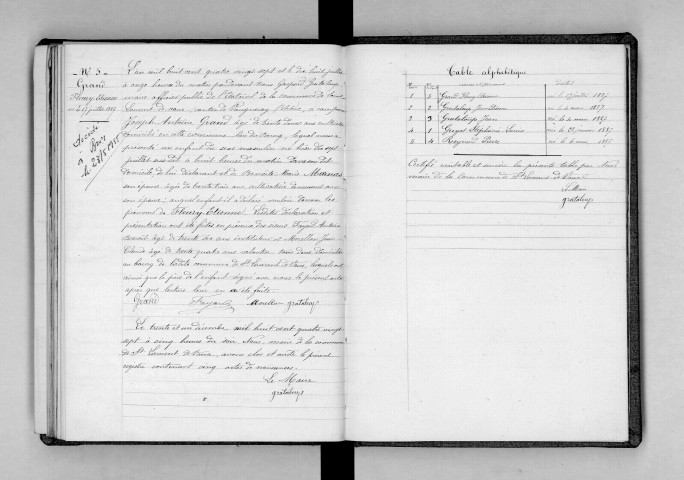 N° 5
Grand
Fleury Etienne
né le 17 juillet 1887
Décédé
à
le 23/5 1965
L'an mil huit cent quatre vingt sept et le dix huit juillet
à onze heures du matin pardevant nous Gaspard Grataloup
maire officier public de l'Etat civil de la commune de Saint
Laurent de Vaux, canton de Vaugneray, Rhône, a comparu
Joseph Antoine Grand âgé de trente deux ans
domicilié en cette commune, lequel nous a
présenté un enfant du sexe masculin né hier dix sept
juillet à huit heures du matin dans son
domicile de lui déclarant et de Benoîte Marie
son épouse âgée de trente ans demeurant avec
son époux; auquel enfant il a déclaré vouloir donner les
prénoms de Fleury Etienne. Lesdites déclaration et
présentation ont été faites en présence des sieurs Fayard Antoine
Benoît âgé de trente six ans instituteur et Morellon Jean
Claude âgé de trente quatre ans tous deux domiciliés
au bourg de ladite commune de St Laurent de Vaux, lesquels ont
ainsi que le père de l'enfant signé avec nous le présent acte
après que lecture leur en a été faite.
Grand Fayard Morellon grataloup
Le trente et un décembre mil huit cent quatre vingt
sept à cinq heures du soir Nous, maire de la commune
de St Laurent de Vaux, avons clos et arrêté le présent
registre contenant cinq actes de naissances.
Le Maire
grataloup
Table alphabétique
1 5 Grand Fleury Etienne né le 17 juillet 1887
2 2 Grataloup né le 4 1887
3 3 Grataloup Jean né le 4 1887
4 1 Stéphanie né le 1887
5 4 Pierre né le 6 1887
Certifié véritable et sincère la présente table par Nous
maire de la commune de St Laurent de Vaux
Le Maire
grataloup